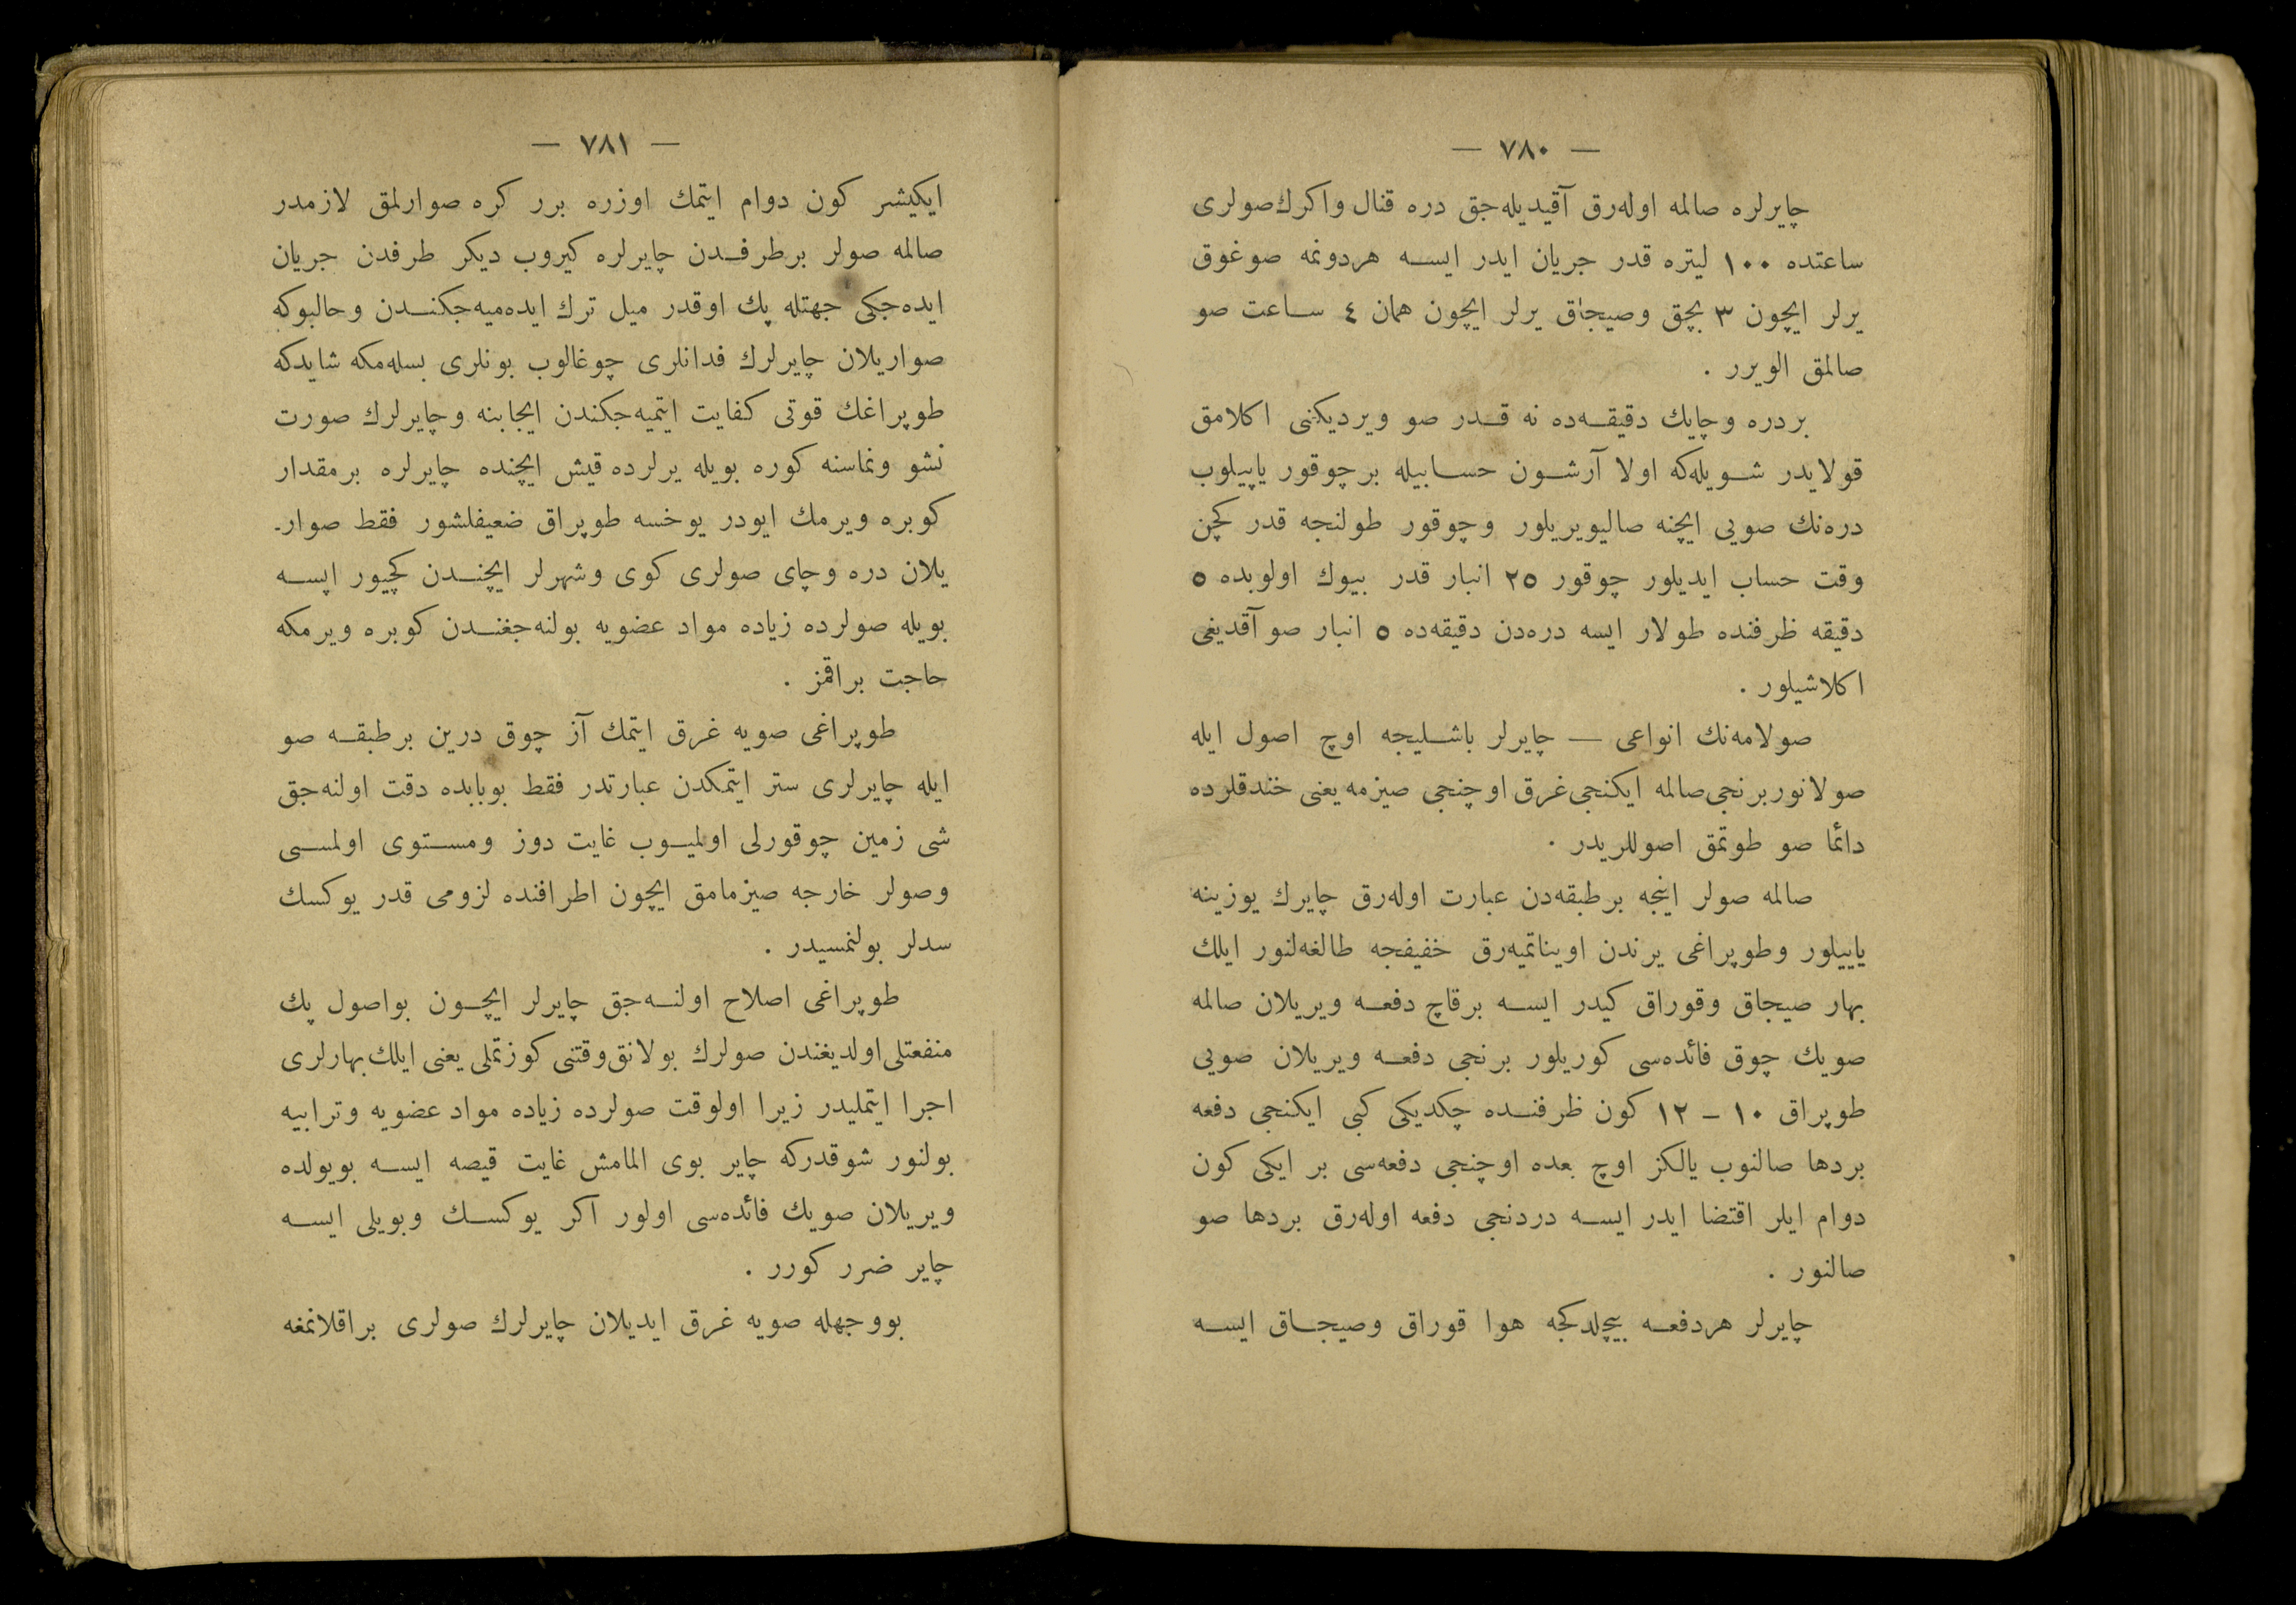 — ٧٨٠ —
چايرلره صالمه اوله‌رق آقيديله‌جق دره قنال واكرك صولرى
ساعتده ١٠٠ ليتره قدر جريان ايدر ايسه هردونمه صوغوق
يرلر ايچون ٣ بچق وصيجاق يرلر ايچون همان ٤ ساعت صو
صالمق الويرر .
بردره وچايك دقيقه‌ده نه قدر صو ويرديكنى اكلامق
قولايدر شويله‌كه اولا آرشون حسابيله برچوقور ياپيلوب
دره‌نك صويى ايچنه صاليويريلور وچوقور طولنجه قدر كچن
وقت حساب ايديلور چوقور ٢٥ انبار قدر بيوك اولوبده ٥
دقيقه ظرفنده طولار ايسه دره‌دن دقيقه‌ده ٥ انبار صو آقديغى
اكلاشيلور .
صولامه‌نك انواعى — چايرلر باشليجه اوچ اصول ايله
صولانور برنجى صالمه ايكنجى غرق اوچنجى صيزمه يعنى خندقلرده
دائما صو طوتمق اصوللريدر .
صالمه صولر اينجه برطبقه‌دن عبارت اوله‌رق چايرك يوزينه
ياييلور وطوپراغى يرندن اويناتميه‌رق خفيفجه طالغه‌لنور ايلك
بهار صيجاق وقوراق كيدر ايسه برقاچ دفعه ويريلان صالمه
صويك چوق فائده‌سى كوريلور برنجى دفعه ويريلان صويى
طوپراق ١٠ – ١٢ كون ظرفنده چكديكى كبى ايكنجى دفعه
بردها صالنوب يالكز اوچ بعده اوچنجى دفعه‌سى بر ايكى كون
دوام ايلر اقتضا ايدر ايسه دردنجى دفعه اوله‌رق بردها صو
صالنور .
چايرلر هردفعه بيچلدكجه هوا قوراق وصيجاق ايسه
— ٧٨١ —
ايكيشر كون دوام ايتمك اوزره برر كره صوارلمق لازمدر
صالمه صولر برطرفدن چايرلره كيروب ديكر طرفدن جريان
ايده‌جكى جهتله پك اوقدر ميل ترك ايده‌ميه‌جكندن وحالبوكه
صواريلان چايرلرك فدانلرى چوغالوب بونلرى بسله‌مكه شايدكه
طوپراغك قوتى كفايت ايتميه‌جكندن ايجابنه وچايرلرك صورت
نشو ونماسنه كوره بويله يرلرده قيش ايچنده چايرلره برمقدار
كوبره ويرمك ايودر يوخسه طوپراق ضعيفلشور فقط صوار-
يلان دره وچاى صولرى كوى وشهرلر ايچندن كچيور ايسه
بويله صولرده زياده مواد عضويه بولنه‌جغندن كوبره ويرمكه
حاجت براقمز .
طوپراغى صويه غرق ايتمك آز چوق درين برطبقه صو
ايله چايرلرى ستر ايتمكدن عبارتدر فقط بوبابده دقت اولنه‌جق
شى زمين چوقورلى اولميوب غايت دوز ومستوى اولمسى
وصولر خارجه صيزمامق ايچون اطرافنده لزومى قدر يوكسك
سدلر بولنمسيدر .
طوپراغى اصلاح اولنه‌جق چايرلر ايچون بواصول پك
منفعتلى اولديغندن صولرك بولانق وقتنى كوزتملى يعنى ايلك بهارلرى
اجرا ايتمليدر زيرا اولوقت صولرده زياده مواد عضويه وترابيه
بولنور شوقدركه چاير بوى المامش غايت قيصه ايسه بويولده
ويريلان صويك فائده‌سى اولور اكر يوكسك وبويلى ايسه
چاير ضرر كورر .
بووجهله صويه غرق ايديلان چايرلرك صولرى براقلانمغه